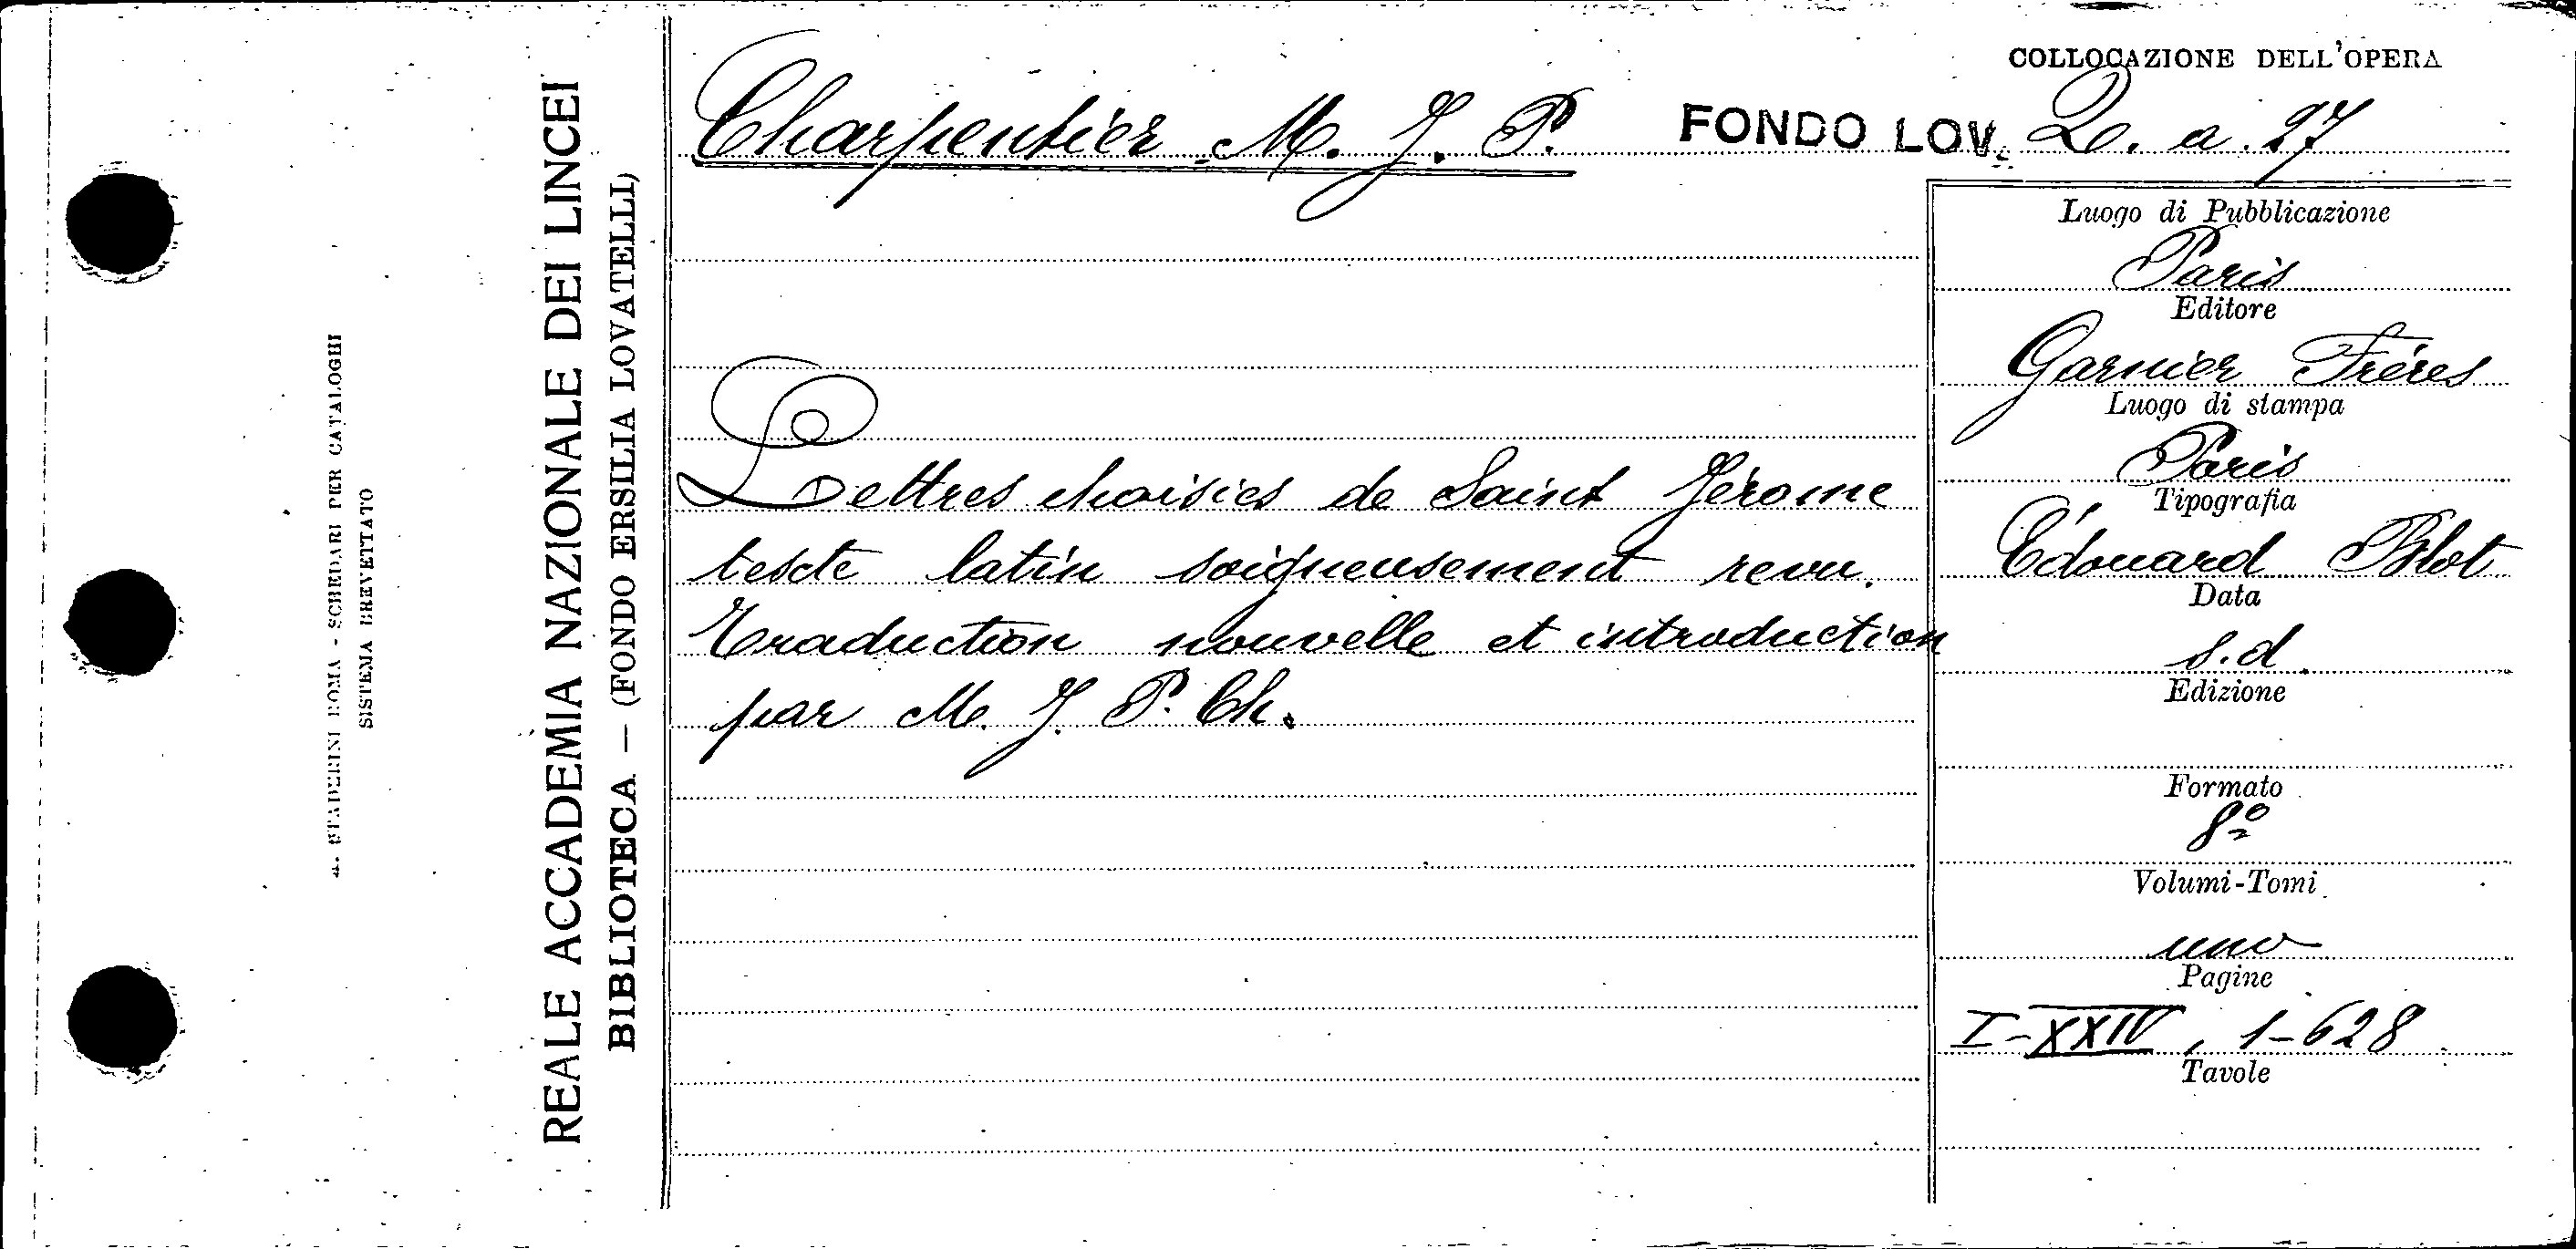 COLLOCAZIONE DELL'OPERA
Charpentier M. J. P.
FONDO LOV. 2. a. 27
Lettres choisies de Saint Jérome
texte latin soigneusement revu.
Traduction nouvelle et introduction
par M. J. P. Ch.
Luogo di Pubblicazione
Paris
Editore
Garnier Fréres
Luogo di stampa
Paris
Tipografia
Édouard Blot
Data
s.d.
Edizione
Formato
8º
Volumi-Tomi
uno
Pagine
I-XXIV, 1-628
Tavole
REALE ACCADEMIA NAZIONALE DEI LINCEI
BIBLIOTECA — (FONDO ERSILIA LOVATELLI)
STADERINI ROMA - SCHEDARI PER CATALOGHI
SISTEMA BREVETTATO